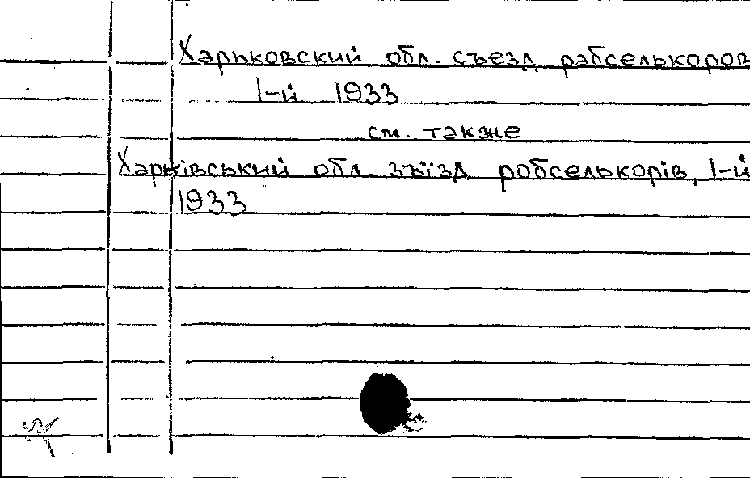 Харьковский обл. съезд рабселькоров
1-й 1933
см. также
Харківський обл. зъїзд робселькорів, 1-й
1933